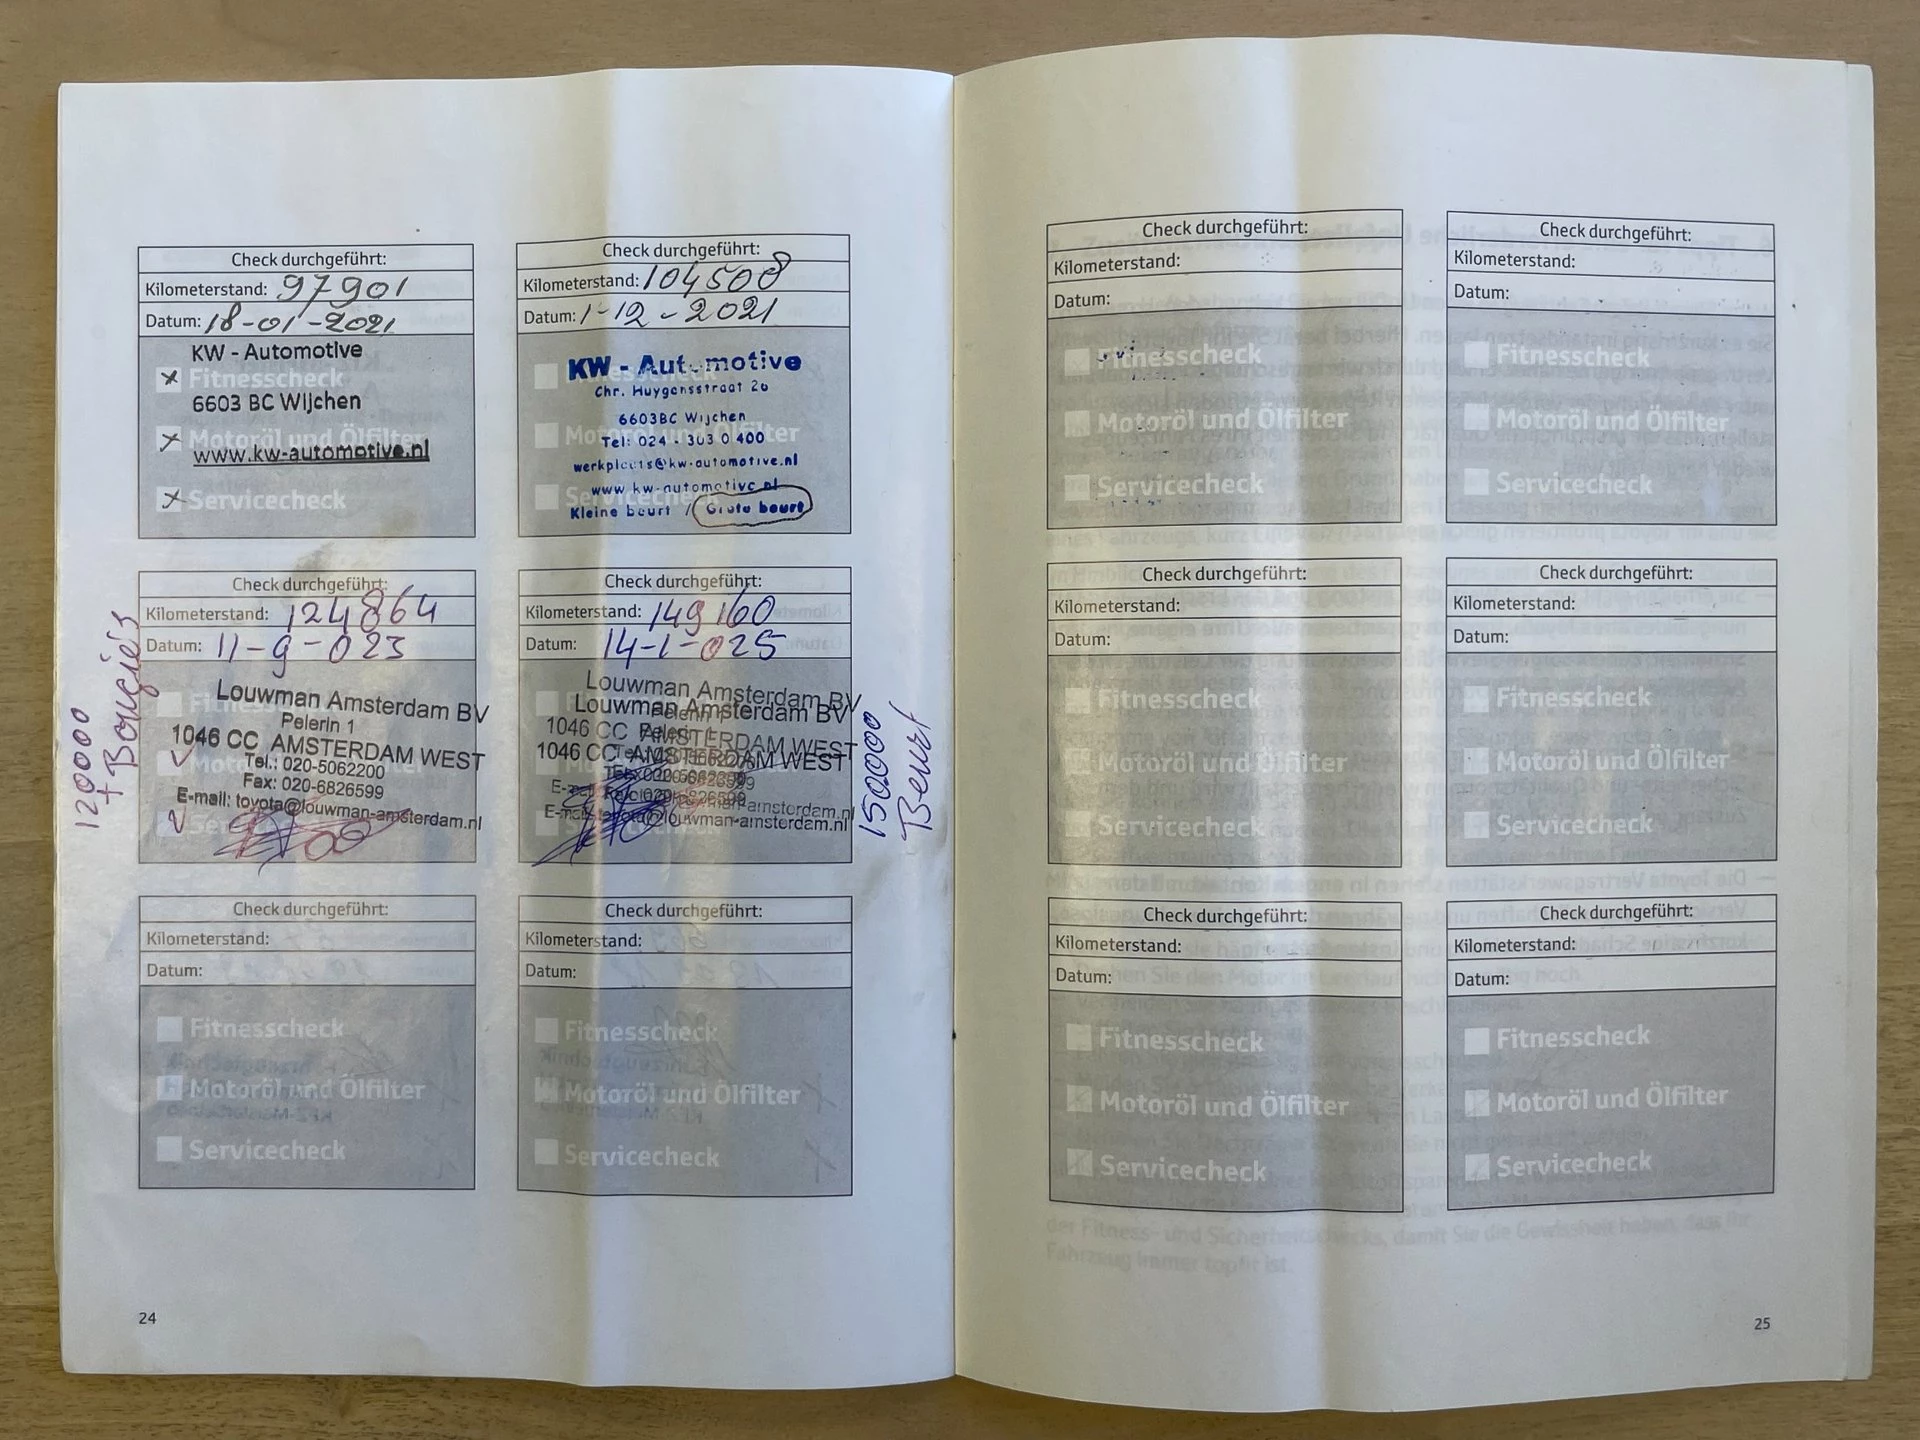 Check durchgeführt:
Kilometerstand: 97901
Datum: 18-01-2021
KW - Automotive
Fitnesscheck
6603 BC Wijchen
Motoröl und Ölfilter
www.kw-automotive.nl
Servicecheck
Check durchgeführt:
Kilometerstand: 104508
Datum: 1-12-2021
KW - Automotive
Chr. Huygensstraat 26
6603BC Wijchen
Tel: 024 - 303 0 400
werkplaats@kw-automotive.nl
www kw-automotive nl
Servicecheck
Kleine beurt / Grote beurt
Check durchgeführt:
Kilometerstand: 124864
Datum: 11-9-023
Louwman Amsterdam BV
Pelerin 1
1046 CC AMSTERDAM WEST
Tel.: 020-5062200
Fax: 020-6826599
E-mail: toyota@louwman-amsterdam.nl
120000
+ Bougies
Check durchgeführt:
Kilometerstand: 149160
Datum: 14-1-025
Louwman Amsterdam BV
Louwman Amsterdam BV
1046 CC AMSTERDAM WEST
1046 CC AMSTERDAM WEST
150000
Beurt
Check durchgeführt:
Kilometerstand:
Datum:
Fitnesscheck
Motoröl und Ölfilter
Servicecheck
Check durchgeführt:
Kilometerstand:
Datum:
Fitnesscheck
Motoröl und Ölfilter
Servicecheck
24
Check durchgeführt:
Kilometerstand:
Datum:
Fitnesscheck
Motoröl und Ölfilter
Servicecheck
Check durchgeführt:
Kilometerstand:
Datum:
Fitnesscheck
Motoröl und Ölfilter
Servicecheck
Check durchgeführt:
Kilometerstand:
Datum:
Fitnesscheck
Motoröl und Ölfilter
Servicecheck
Check durchgeführt:
Kilometerstand:
Datum:
Fitnesscheck
Motoröl und Ölfilter
Servicecheck
Check durchgeführt:
Kilometerstand:
Datum:
Fitnesscheck
Motoröl und Ölfilter
Servicecheck
Check durchgeführt:
Kilometerstand:
Datum:
Fitnesscheck
Motoröl und Ölfilter
Servicecheck
25